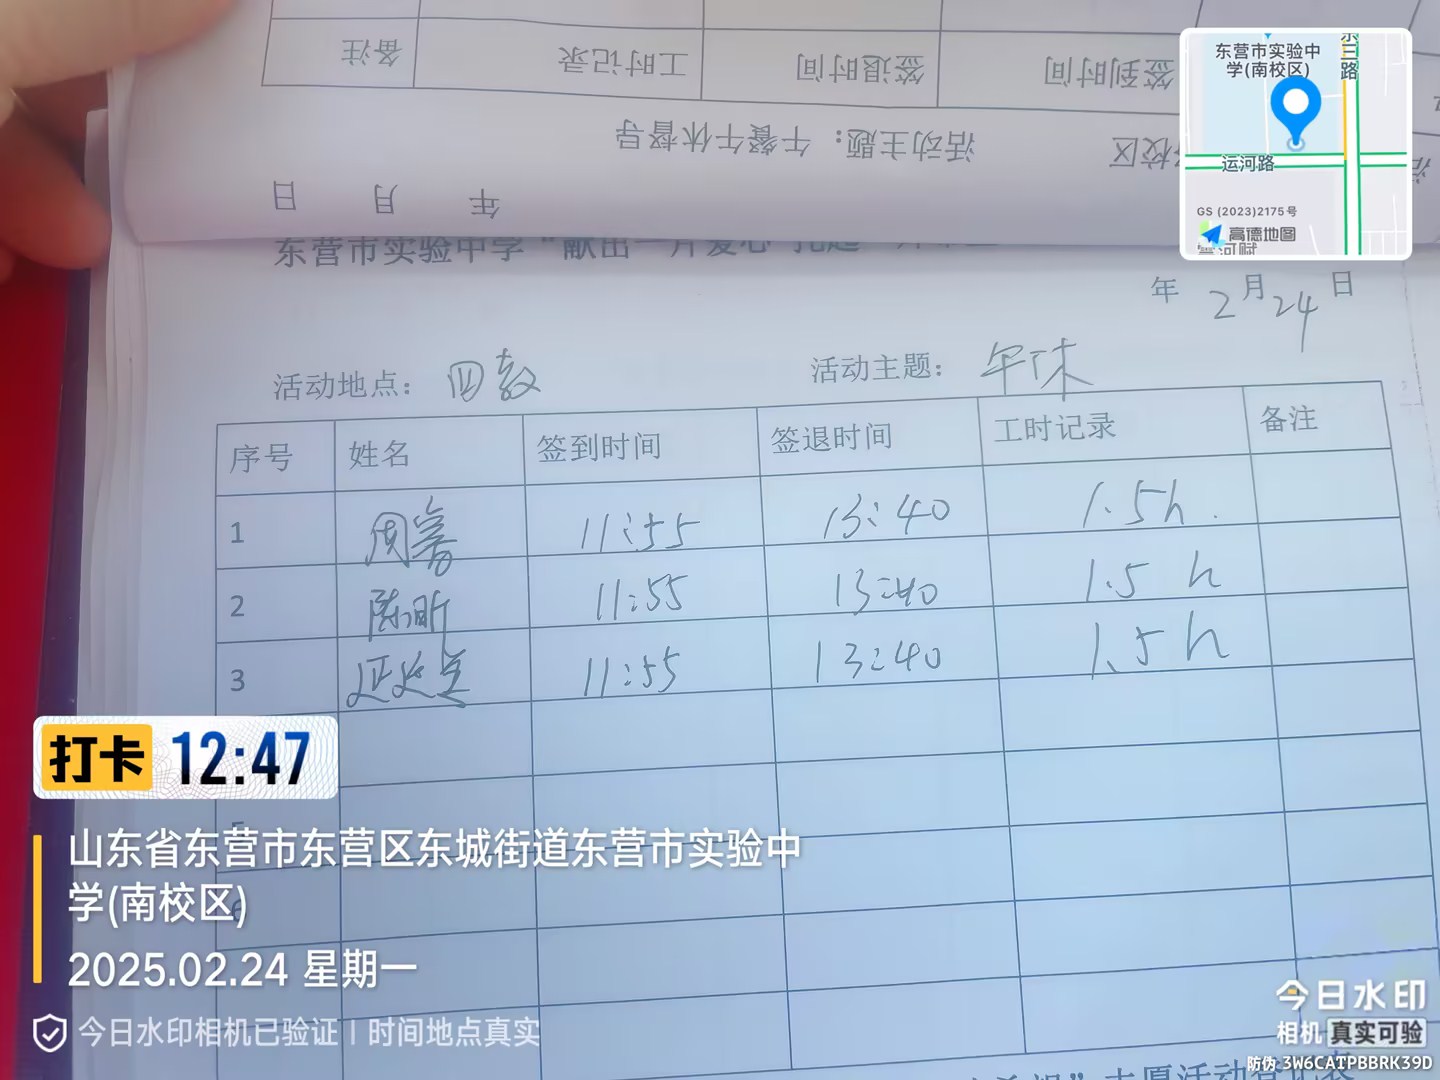 备注 工时记录 签退时间 签到时间
活动主题：午餐午休督导 校区
年 月 日
东营市实验中学“献出一片爱心
年 2月24日
活动地点：四教 活动主题：午休
序号 姓名 签到时间 签退时间 工时记录 备注
1 11:55 13:40 1.5h.
2 陈昕 11:55 13:40 1.5h
3 11:55 13:40 1.5h
志愿活动登记表
东营市实验中
学(南校区)
东三路
运河路
GS (2023)2175号
高德地图
打卡 12:47
山东省东营市东营区东城街道东营市实验中
学(南校区)
2025.02.24 星期一
今日水印相机已验证 | 时间地点真实
今日水印
相机 真实可验
防伪 3W6CATPBBRK39D